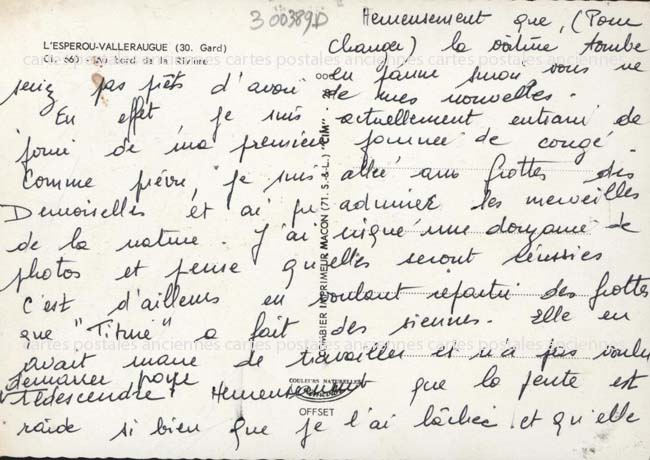 300389D
Heureusement que, (Pour
L'ESPEROU-VALLERAUGUE (30. Gard)
changer) la voiture tombe
Cl. 660 - Au bord de la Rivière
en panne sinon vous ne
seriez pas prêts d'avoir de mes nouvelles.
En effet je suis actuellement entrain de
jouir de ma première journée de congé.
Comme prévu, je suis allée aux grottes des
Demoiselles et ai pu admirer les merveilles
de la nature. J'ai risqué une douzaine de
photos et pense qu'elles seront réussies
C'est d'ailleurs en voulant repartir des grottes
que "Titine" a fait des siennes. Elle en
avait marre de travailler et n'a pas voulu
demarrer pour
redescendre. Heureusement que la pente est
raide si bien que je l'ai lâchée et qu'elle
COMBIER IMPRIMEUR MACON (71. S.-&-L.) "CIM"
COULEURS NATURELLES
OFFSET
cartes postales anciennes cartes postales anciennes cartes postales anciennes